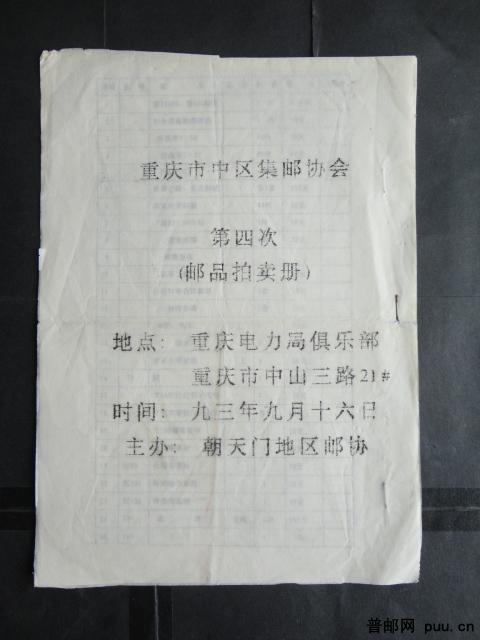 重庆市中区集邮协会
第四次
(邮品拍卖册)
地点: 重庆电力局俱乐部
重庆市中山三路21#
时间: 九三年九月十六日
主办: 朝天门地区邮协
普邮网 puu.cn